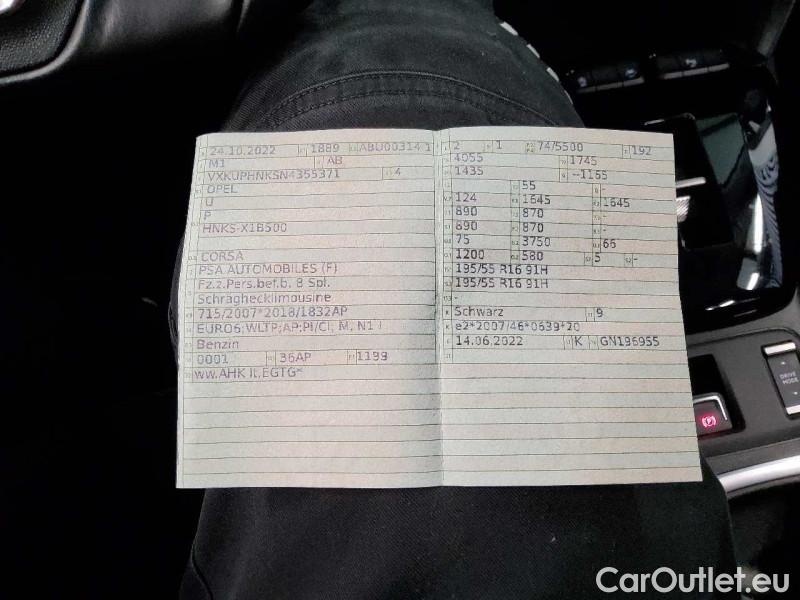 24.10.2022 1889 ABU00314 1
M1 AB
VXKUPHNKSN4355371 4
OPEL
U
P
HNKS-X1B500
CORSA
PSA AUTOMOBILES (F)
Fz.z.Pers.bef.b. 8 Spl.
Schräghecklimousine
715/2007*2018/1832AP
EURO6;WLTP;AP:PI/CI, M, N1 I
Benzin
0001 36AP 1199
ww.AHK lt.EGTG*
2 1 74/5500 192
4055 1745
1435 --1165
55 -
124 1645 1645
890 870 -
890 870 -
75 3750 66
1200 580 5 -
195/55 R16 91H
195/55 R16 91H
-
Schwarz 9
e2*2007/46*0639*20
14.06.2022 K GN196955
DRIVE
MODE
CarOutlet.eu